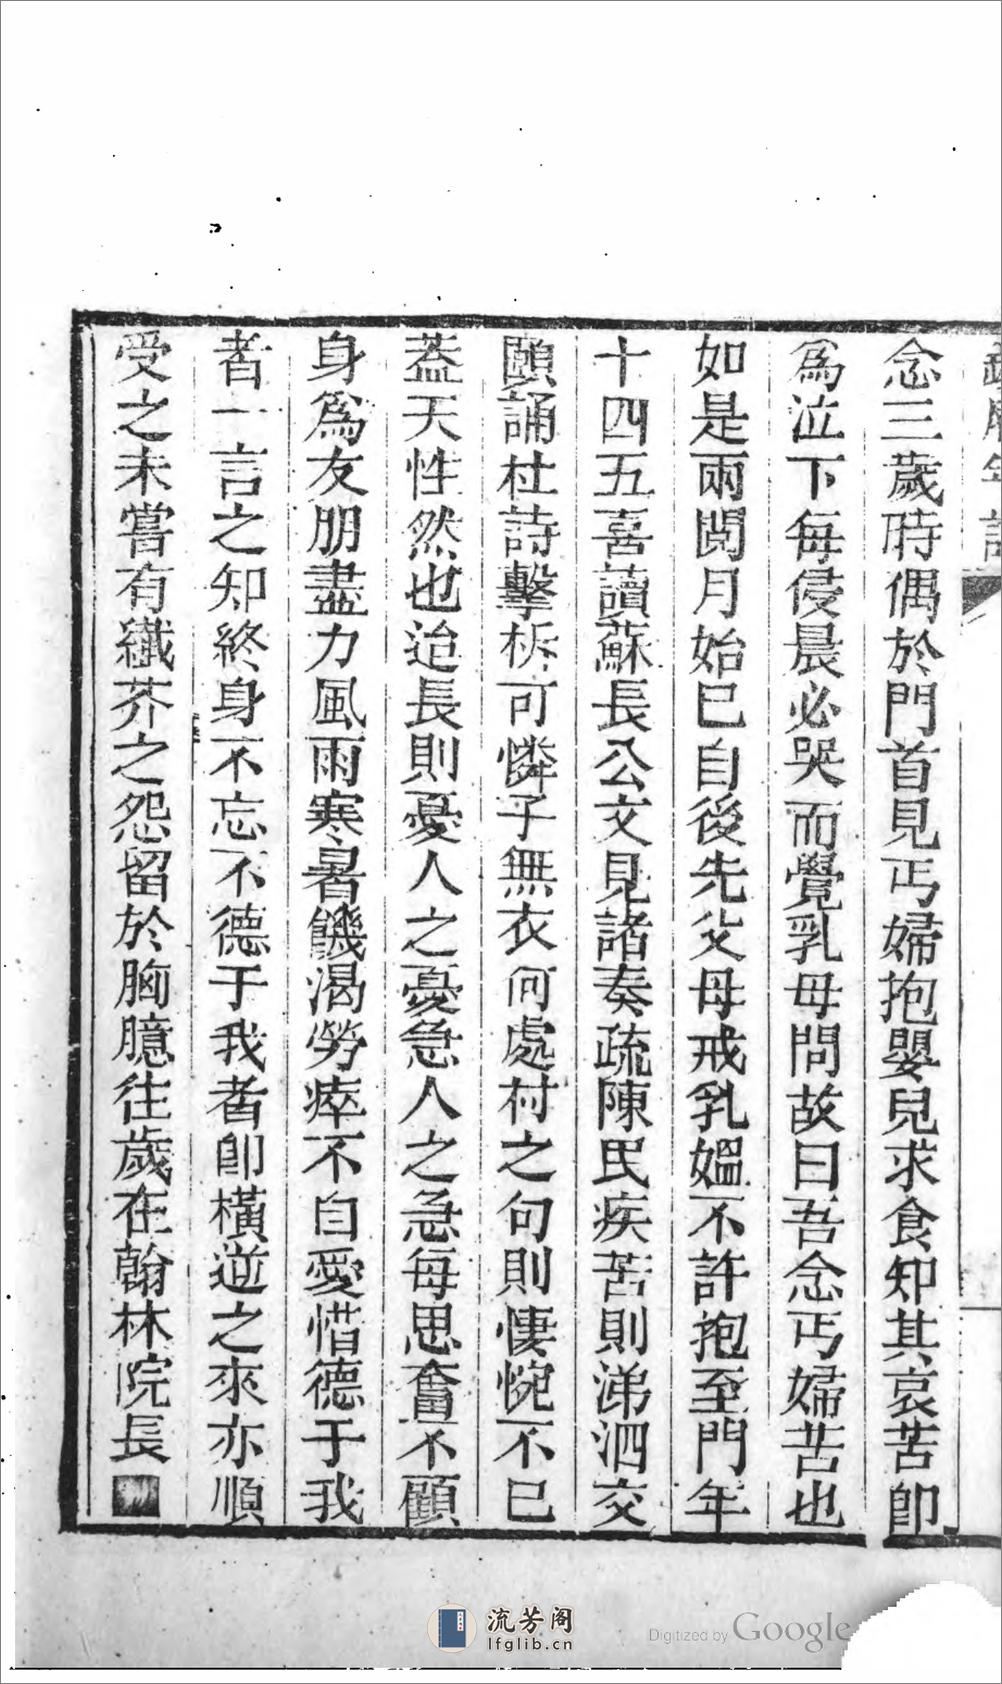 念三歲時偶於門首見丐婦抱嬰兒求食知其哀苦卽
爲泣下每侵晨必哭而覺乳母問故曰吾念丐婦苦也
如是兩閱月始已自後先父母戒乳媼不許抱至門年
十四五喜讀蘇長公文見諸奏疏陳民疾苦則涕泗交
頤誦杜詩擊柝可憐子無衣何處村之句則悽惋不已
葢天性然也迨長則憂人之憂急人之急每思奮不顧
身爲友朋盡力風雨寒暑饑渴勞瘁不自愛惜德于我
者一言之知終身不忘不德于我者卽橫逆之來亦順
受之未嘗有纖芥之怨留於胸臆往歲在翰林院長
流芳阁
lfglib.cn
Digitized by Google